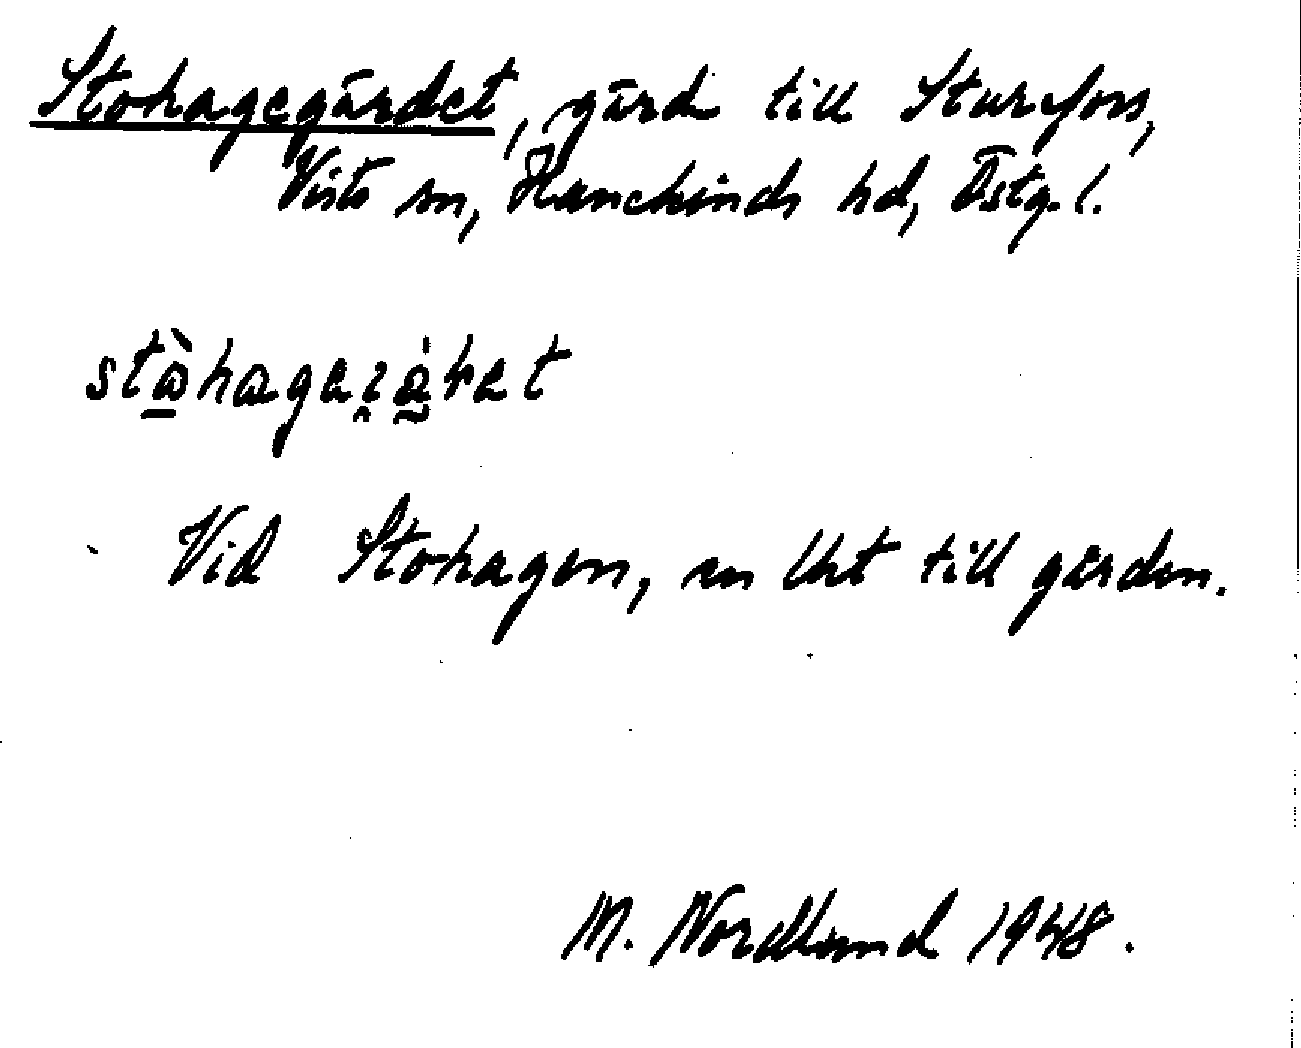 Stohagegärdet, gärde till Sturefors,
Vists sn, Hanekinds hd, Östg. l.
Vid Stohagen, en lht till gården.
M. Nordlund 1948.